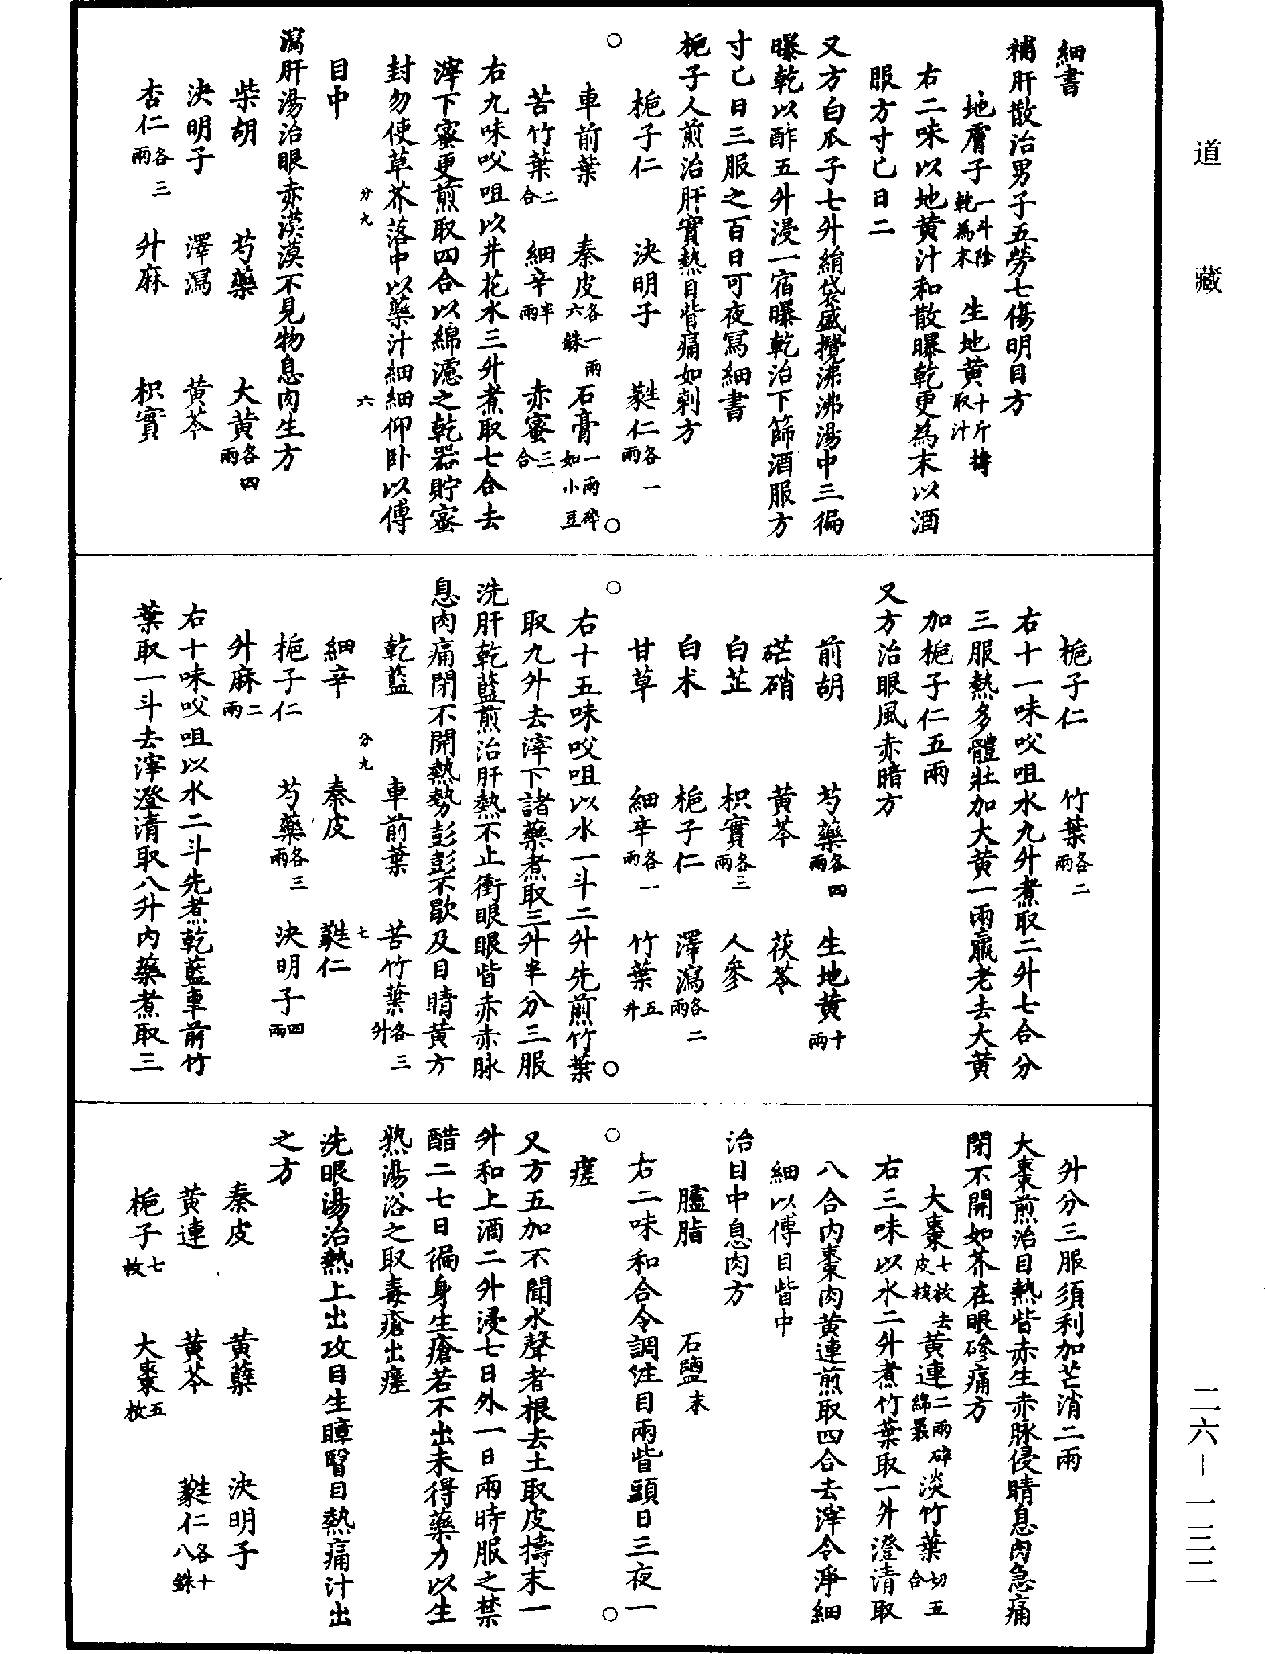 道藏
細書
補肝散治男子五勞七傷明目方
地膚子一斗陰乾為末　生地黃十斤擣取汁
右二味以地黃汁和散曝乾更為末以酒
服方寸匕日二
又方白瓜子七升絹袋盛攪沸沸湯中三徧
曝乾以酢五升浸一宿曝乾治下篩酒服方
寸匕日三服之百日可夜寫細書
梔子人煎治肝實熱目眥痛如刺方
梔子仁　決明子　蕤仁各一兩
車前葉　秦皮各一兩六銖　石膏一兩碎如小豆
苦竹葉二合　細辛半兩　赤蜜三合
右九味㕮咀以井花水三升煮取七合去
滓下蜜更煎取四合以綿濾之乾器貯蜜
封勿使草芥落中以藥汁細細仰臥以傅
分九　六
目中
瀉肝湯治眼赤漠漠不見物息肉生方
柴胡　芍藥　大黃各四兩
決明子　澤瀉　黃芩
杏仁各三兩　升麻　枳實
梔子仁　竹葉各二兩
右十一味㕮咀水九升煮取二升七合分
三服熱多體壯加大黃一兩羸老去大黃
加梔子仁五兩
又方治眼風赤暗方
前胡　芍藥各四兩　生地黃十兩
芒硝　黃芩　茯苓
白芷　枳實各三兩　人參
白朮　梔子仁　澤瀉各二兩
甘草　細辛各一兩　竹葉五升
右十五味㕮咀以水一斗二升先煎竹葉
取九升去滓下諸藥煮取三升半分三服
洗肝乾藍煎治肝熱不止衝眼眼眥赤赤脉
息肉痛閉不開熱勢彭彭不歇及目睛黃方
乾藍　車前葉　苦竹葉各三升
分九　七
細辛　秦皮　蕤仁
梔子仁　芍藥各三兩　決明子四兩
升麻二兩
右十味㕮咀以水二斗先煮乾藍車前竹
葉取一斗去滓澄清取八升內藥煮取三
升分三服須利加芒消二兩
大棗煎治目熱眥赤生赤脉侵睛息肉急痛
閉不開如芥在眼磣痛方
大棗七枚去皮核　黃連二兩碎綿裹　淡竹葉切五合
右三味以水二升煮竹葉取一升澄清取
八合內棗肉黃連煎取四合去滓令淨細
細以傅目眥中
治目中息肉方
臚脂　石鹽末
右二味和合令調注目兩眥頭日三夜一
瘥
又方五加不聞水聲者根去土取皮擣末一
升和上酒二升浸七日外一日兩時服之禁
醋二七日徧身生瘡若不出未得藥力以生
熟湯浴之取毒瘡出瘥
洗眼湯治熱上出攻目生瞕瞖目熱痛汁出
之方
秦皮　黃蘗　決明子
黃連　黃芩　蕤仁各十八銖
梔子七枚　大棗五枚
二六—一三二